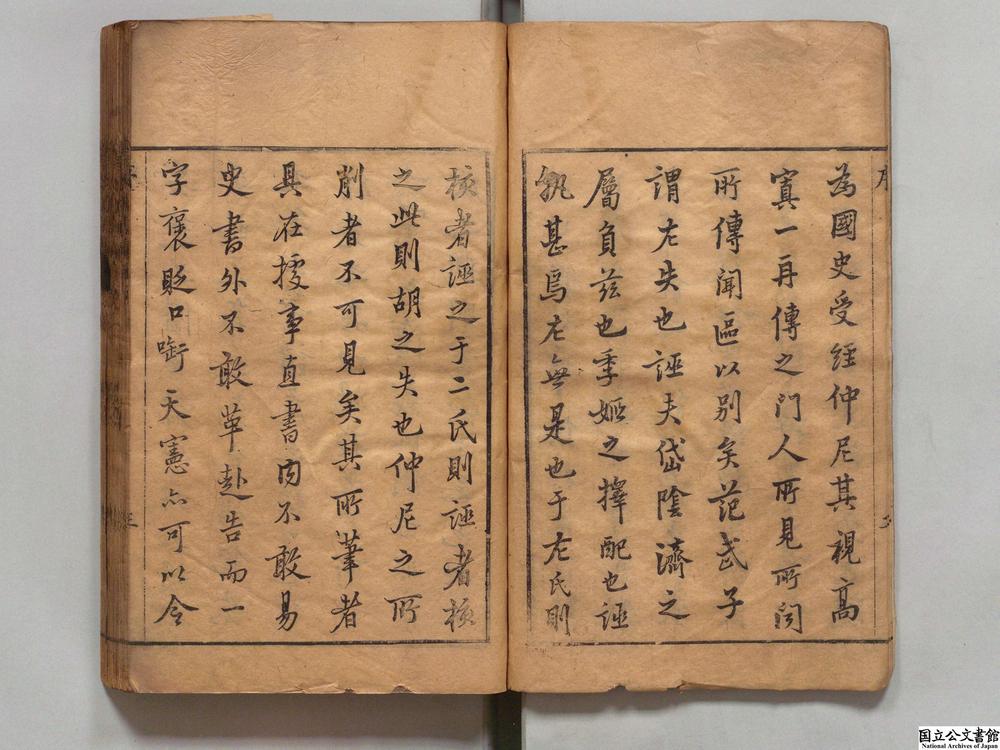 為國史受經仲尼其視高
寘一再傳之門人所見所聞
所傳聞區以別矣范武子
謂左失也誣夫岱陰濟之
屬負茲也季姬之擇配也誣
孰甚焉左無是也于左氏則
核者誣之于二氏則誣者核
之此則胡之失也仲尼之所
削者不可見矣其所筆者
具在據事直書内不敢易
史書外不敢革赴告而一
字褒貶口銜天憲亦可以令
国立公文書館
National Archives of Japan